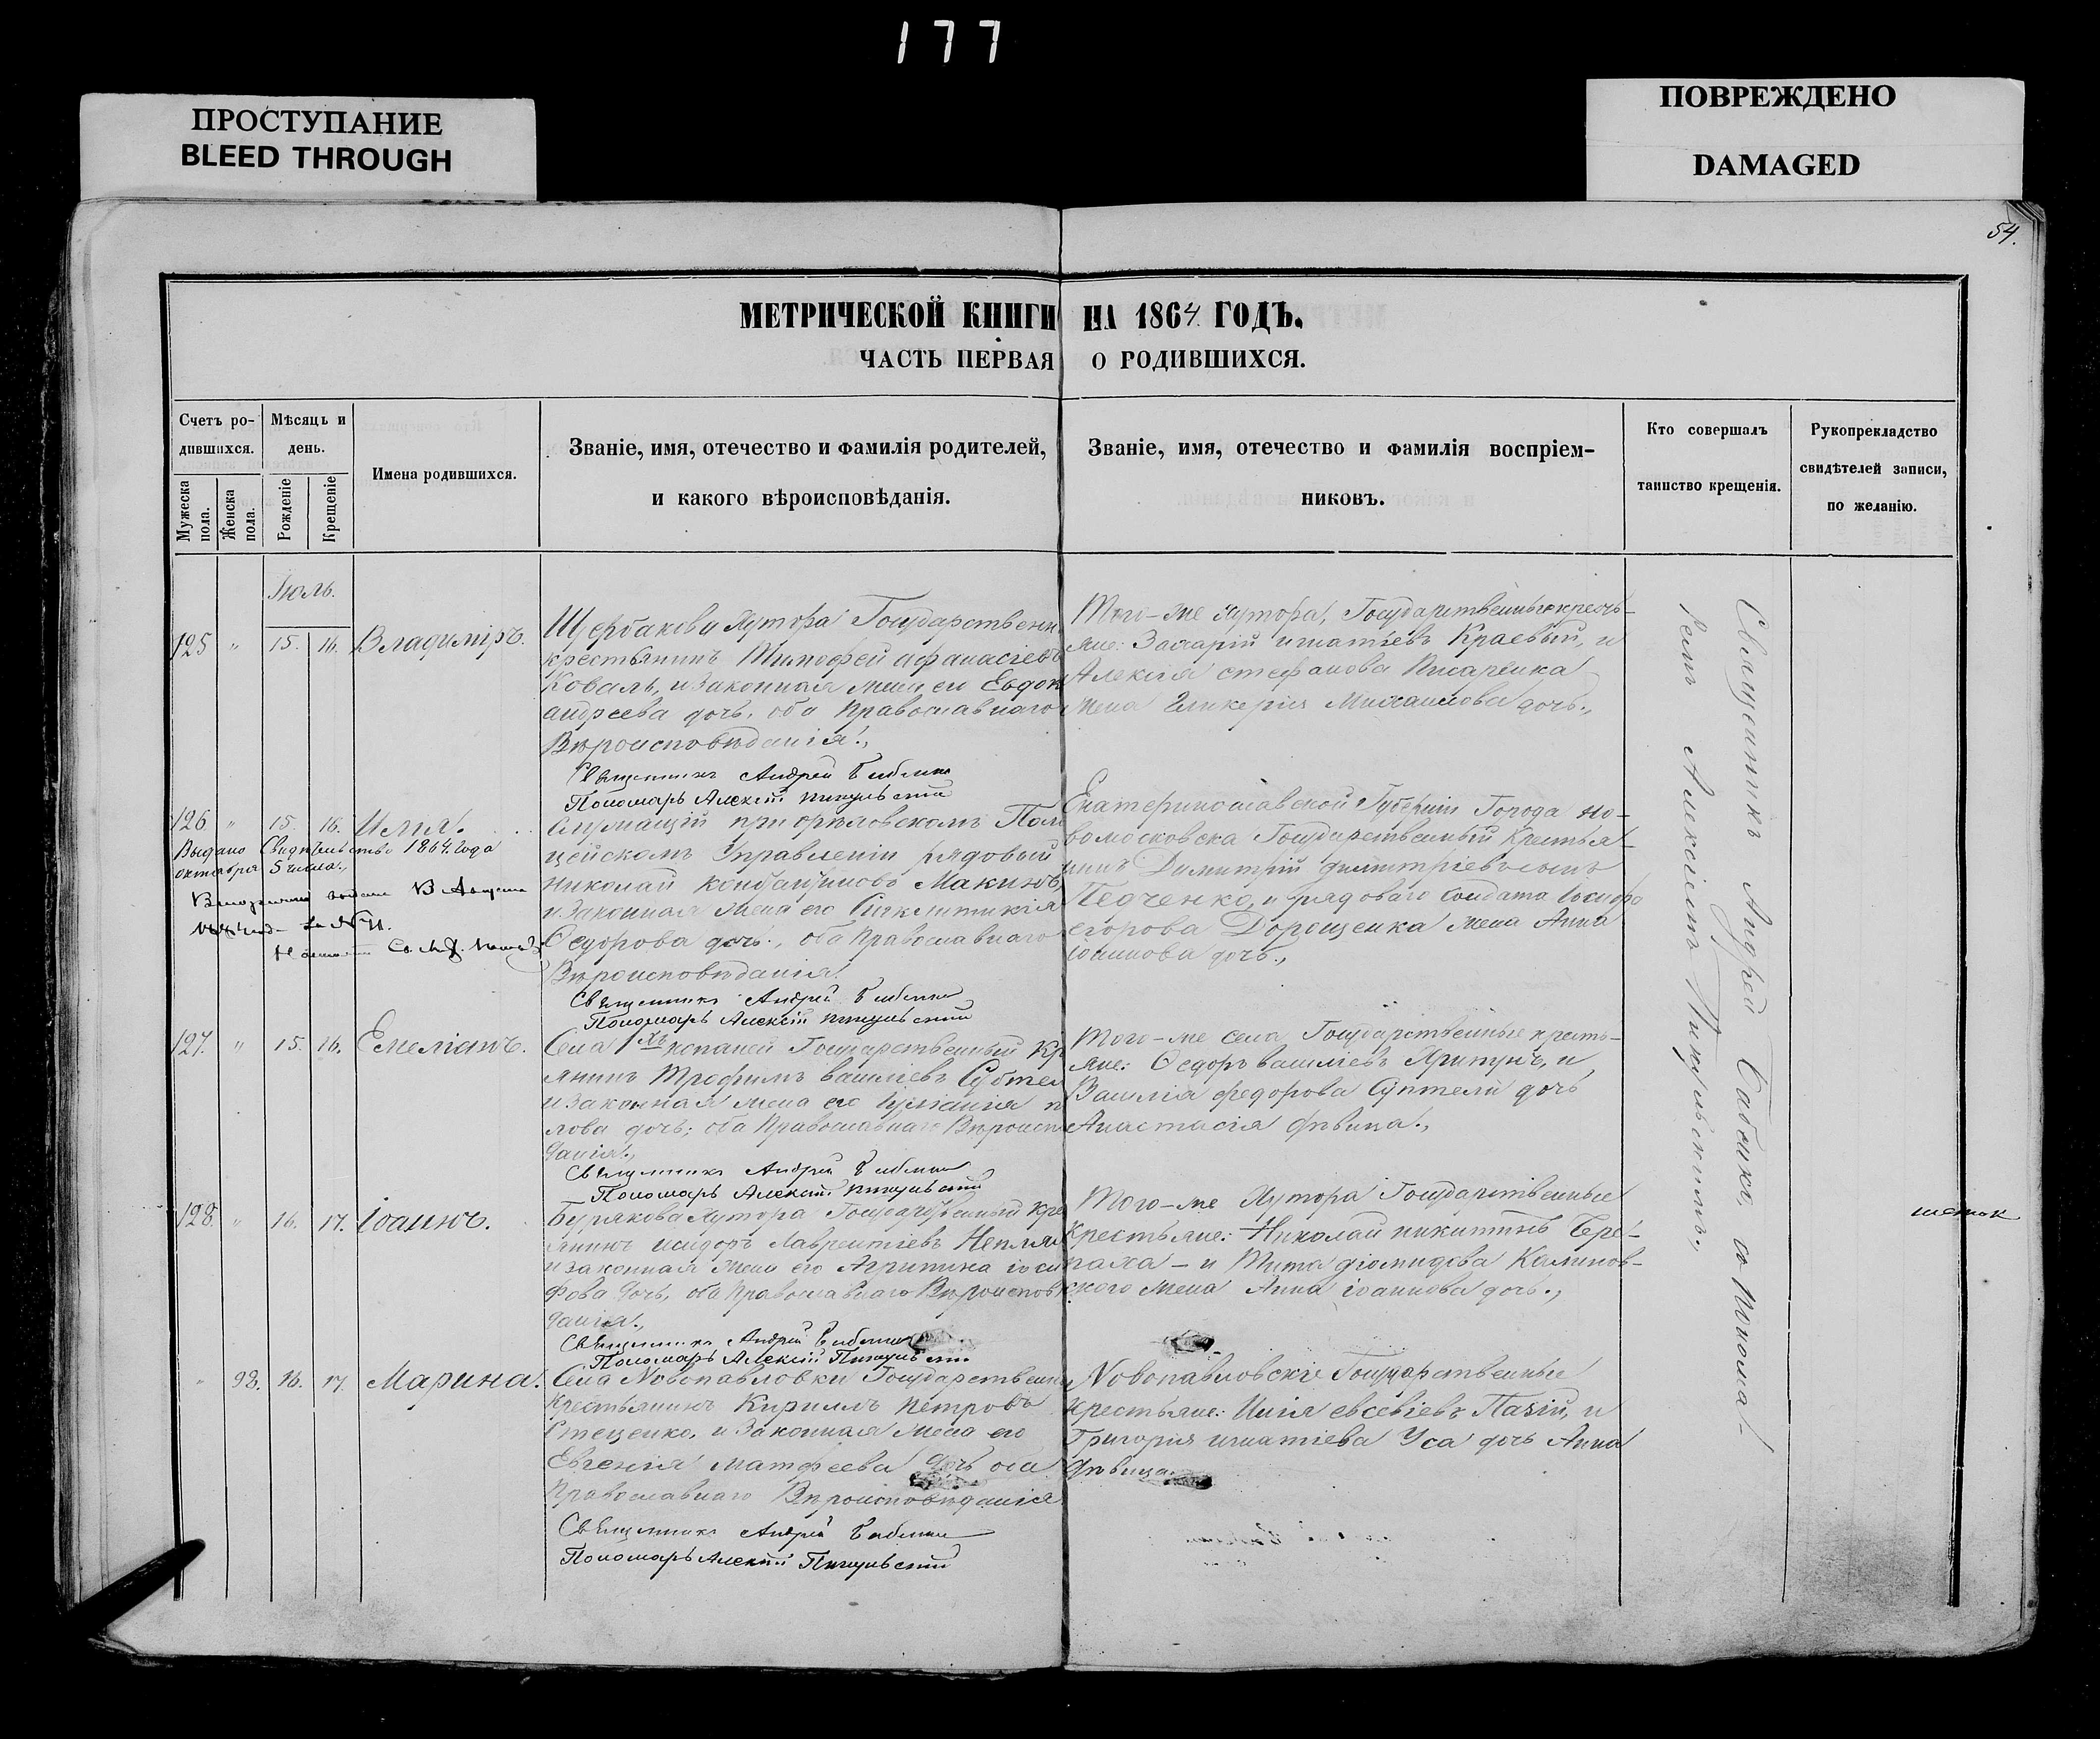 177
ПРОСТУПАНИЕ
BLEED THROUGH
ПОВРЕЖДЕНО
DAMAGED
54.
МЕТРИЧЕСКОЙ КНИГИ НА 1864 ГОДЪ.
ЧАСТЬ ПЕРВАЯ О РОДИВШИХСЯ.
Счетъ ро-
дившихся.
Мужеска пола.
Женска пола.
Мѣсяцъ и
день.
Рожденіе
Крещеніе
Имена родившихся.
Званіе, имя, отечество и фамилія родителей,
и какого вѣроисповѣданія.
Званіе, имя, отечество и фамилія воспріем-
никовъ.
Кто совершалъ
таинство крещенія.
Рукоприкладство
свидѣтелей записи,
по желанію.
Іюль.
125 " 15. 16. Владиміръ.
Щербакова Хутора Государственн
крестьянинъ Тимофей афанасіевъ
Коваль, и законная жена его Евдок
андреева дочь, оба Православнаго
Вѣроисповѣданія.,
Священникъ Андрей Бабенко
Пономарь Алексій Пикульскій
Того-же хутора, Государственные кресть-
яне: Захарій игнатіевъ Краевый, и
Алексія стефанова Писаренка
жена Гликерія Михаилова дочь.,
126 " 15. 16. Илія.
Выдано Свидѣтельство 1864. года
октября 5 числа.,
Служащій при орѣховскомъ Поли
цейскомъ Управленіи рядовый
Николай Макинъ
и законная жена его Синклитикія
Ѳедорова дочь., оба Православнаго
Вѣроисповѣданія.
Священникъ Андрей Бабенко
Пономарь Алексій Пикульскій
Екатеринославской Губерніи Города Но-
вомосковска Государственный Крестья-
нинъ Димитрій димитріевъ сынъ
и рядоваго солдата Іосифа
егорова Дорошенка жена Анна
іоаннова дочь.,
127. " 15. 16. Емеліанъ.
Села Государственный Кр
янинъ Трофимъ василіевъ Субтел
и законная жена его Іуліанія п
лова дочь; оба Православнаго Вѣроисп
данія.,
Священникъ Андрей Бабенко
Пономарь Алексій Пикульскій
Того-же села Государственные кресть-
яне: Ѳедоръ василіевъ Хрипунъ, и
Василія федорова Суптели дочь
Анастасія дѣвица.,
128. " 16. 17. Іоаннъ.
Бурякова Хутора Государственный кре
янинъ исидоръ Лаврентіевъ
и законная жена его Агрипина іоси
фова дочь, оба Православнаго Вѣроиспов
данія.,
Священникъ Андрей Бабенко
Пономарь Алексій Пикульскій
Того-же Хутора Государственные
крестьяне: Николай никитинъ Чере-
паха - и Тита діомидова Калинов-
ского жена Анна іоаннова дочь.,
" 98. 16. 17. Марина.
Села Новопавловки Государственн
Крестьянинъ Кириллъ петровъ
Стеценко, и законная жена его
Евгенія матфеева дочь оба
Православнаго Вѣроисповѣданія
Священникъ Андрей Бабенко
Пономарь Алексій Пикульскій
Новопавловскіе Государственные
крестьяне: Илія евсевіевъ и
Григорія игнатіева Уса дочь Анна
дѣвица.
Священникъ Андрей Бабенко, съ Понома-
ремъ Алексіемъ Пикульскимъ.,